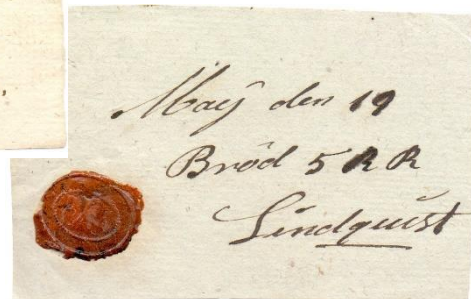 Maÿ den 19
Bröd 5 R R
Lindquist